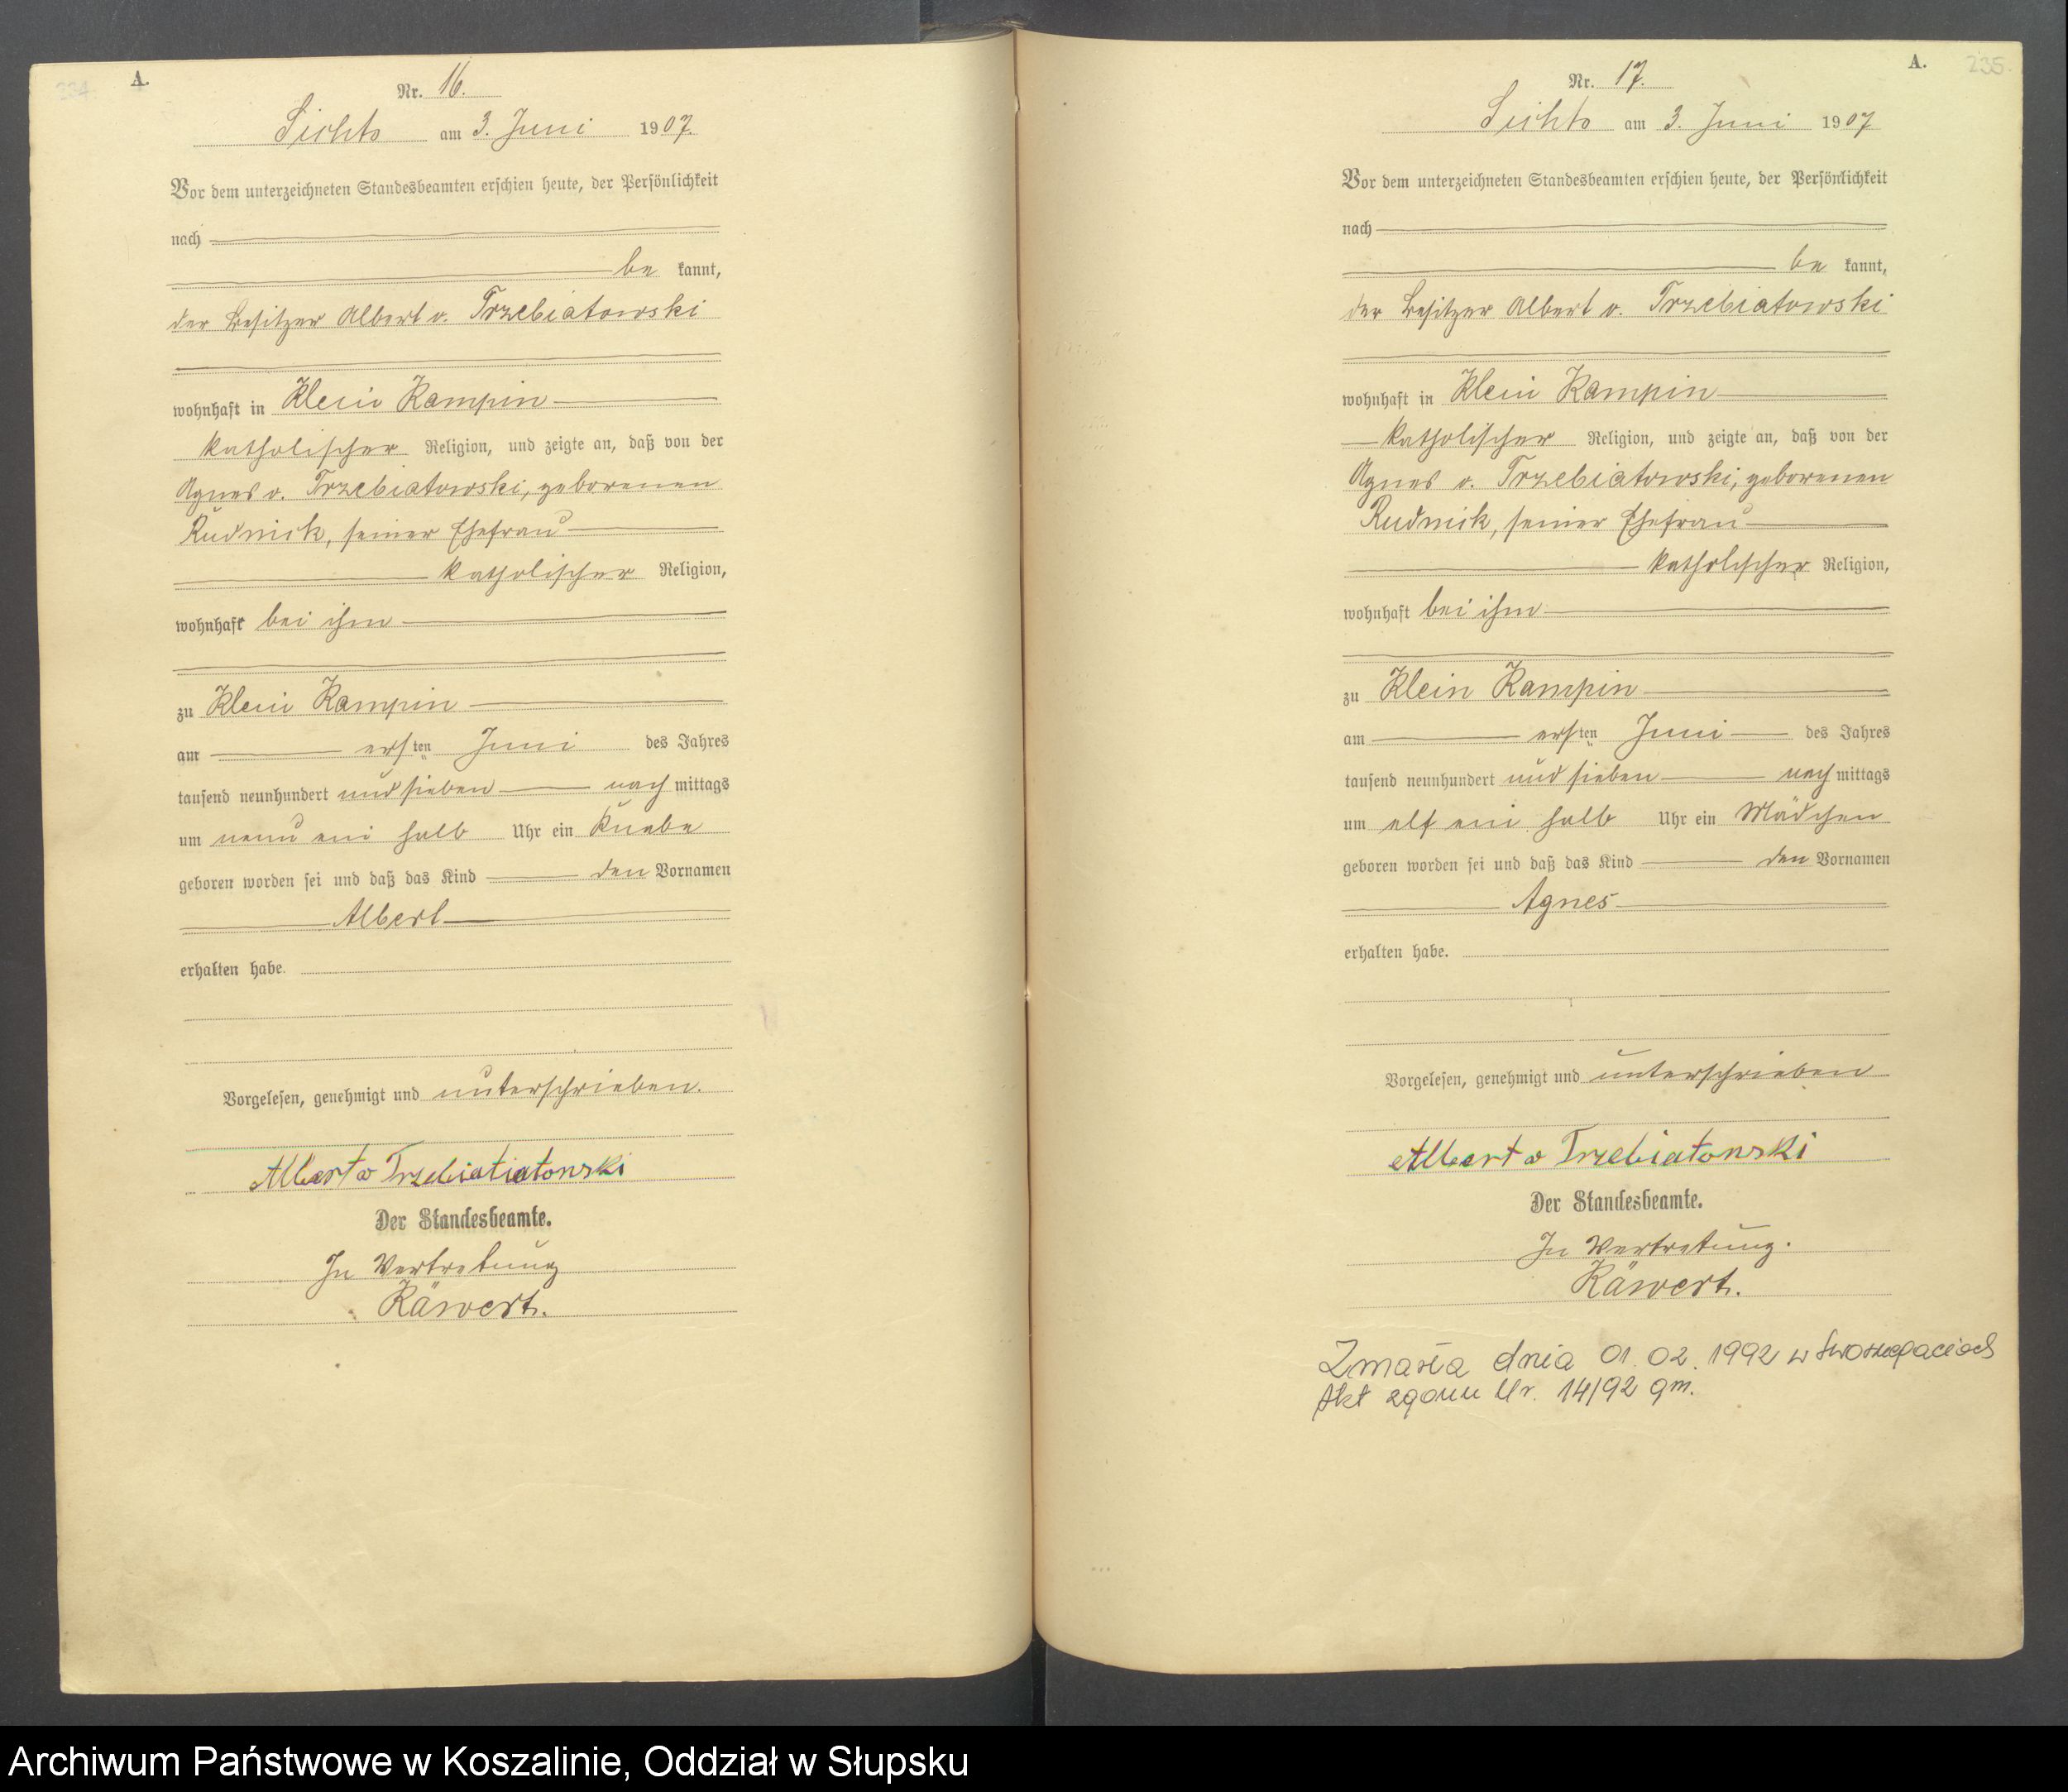 234.
A.
Nr. 16.
Sichts am 3. Juni 1907.
Vor dem unterzeichneten Standesbeamten erschien heute, der Persönlichkeit
nach
be kannt,
der Besitzer Albert v. Trzebiatowski
wohnhaft in Klein Kampin
katholischer Religion, und zeigte an, daß von der
Agnes v. Trzebiatowski, geborenen
Rudnick, seiner Ehefrau
katholischer Religion,
wohnhaft bei ihm
zu Klein Kampin
am ersten Juni des Jahres
tausend neunhundert und sieben nach mittags
um neun ein halb Uhr ein Knabe
geboren worden sei und daß das Kind den Vornamen
Albert
erhalten habe.
Vorgelesen, genehmigt und unterschrieben.
Albert v Trzebiatiatowski
Der Standesbeamte.
In Vertretung
Räwert.
A.
235.
Nr. 17.
Sichts am 3. Juni 1907
Vor dem unterzeichneten Standesbeamten erschien heute, der Persönlichkeit
nach
be kannt,
der Besitzer Albert v. Trzebiatowski
wohnhaft in Klein Kampin
katholischer Religion, und zeigte an, daß von der
Agnes v. Trzebiatowski, geborenen
Rudnik, seiner Ehefrau
katholischer Religion,
wohnhaft bei ihm
zu Klein Kampin
am ersten Juni des Jahres
tausend neunhundert und sieben nach mittags
um elf ein halb Uhr ein Mädchen
geboren worden sei und daß das Kind den Vornamen
Agnes
erhalten habe.
Vorgelesen, genehmigt und unterschrieben
Albert v Trzebiatowski
Der Standesbeamte.
In Vertretung.
Räwert.
Zmarła dnia 01.02.1992 w
Akt zgonu Nr. 14/92 gm.
Archiwum Państwowe w Koszalinie, Oddział w Słupsku